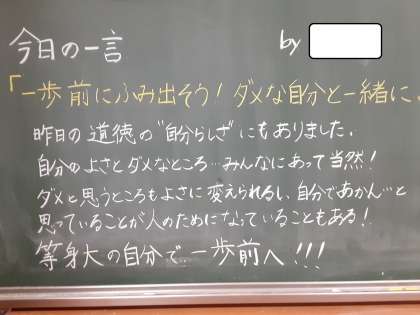 今日の一言 by
「一歩前にふみ出そう！ダメな自分と一緒に、
昨日の道徳の"自分らしさ"にもありました。
自分のよさとダメなところ…みんなにあって当然！
ダメと思うところもよさに変えられるし、自分であかん…と
思っていることが人のためになっていることもある！
等身大の自分で一歩前へ！！！